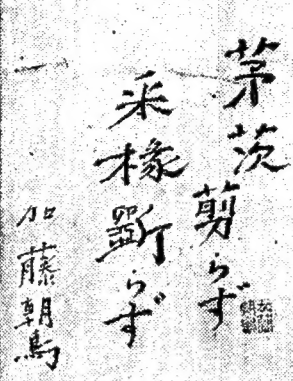 茅茨剪らず
采椽斲らず
加藤朝鳥